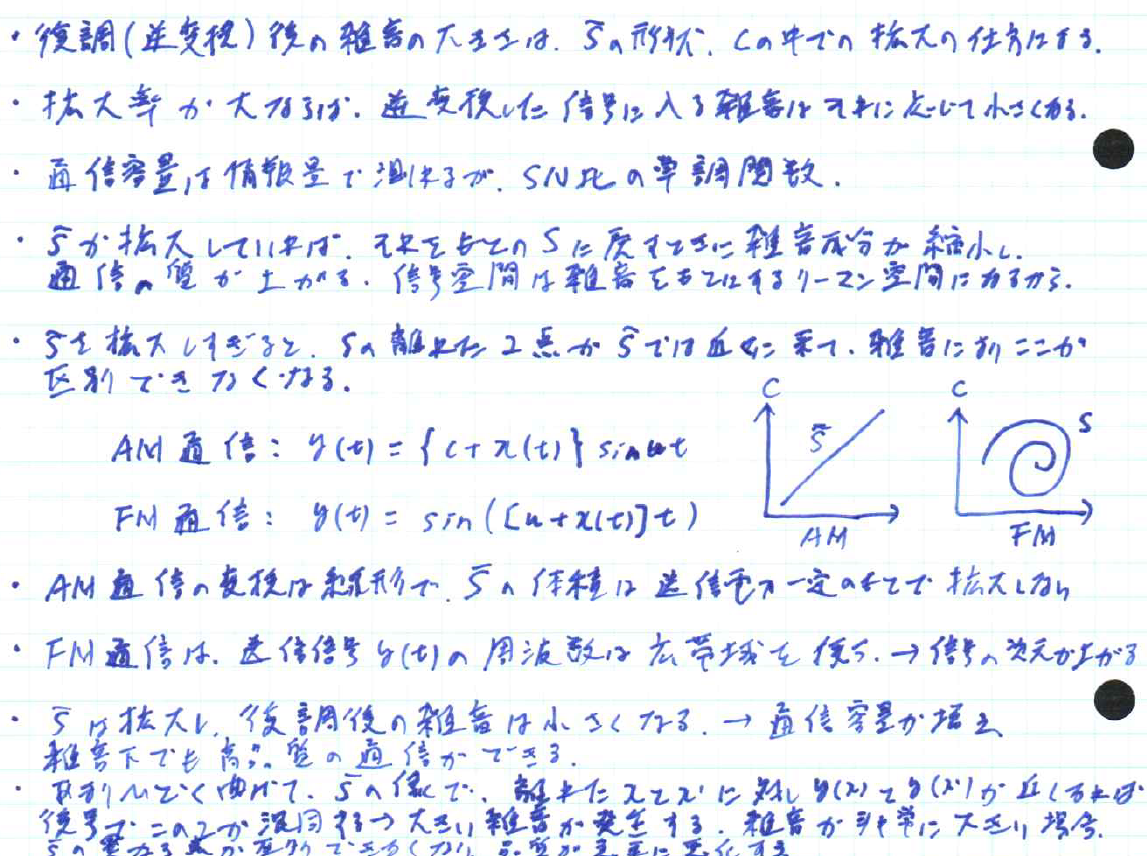 ・復調(逆変換)後の雑音の大きさは、S̃の形状、Cの中での拡大の仕方による.
・拡大率が大なるほど、逆変換した信号に入る雑音はそれに応じて小さくなる.
・通信容量は情報量で測れるが、SN比の単調関数.
・S̃が拡大していれば、それをもとのSに戻すときに雑音成分が縮小し、
通信の質が上がる. 信号空間は雑音をもとにするリーマン空間になるから.
・S̃を拡大しすぎると、Sの離れた2点がS̃では近くに来て、雑音によりここが
区別できなくなる.
C C
AM通信: y(t) = {c + x(t)} sin ωt S̃ S
FM通信: y(t) = sin([ω + x(t)]t)
AM FM
・AM通信の変換は線形で、S̃の体積は送信電力一定のもとで拡大しない
・FM通信は、送信信号y(t)の周波数は広帯域を使う. → 信号の次元が上がる
・S̃は拡大し、復調後の雑音は小さくなる. → 通信容量が増え
雑音下でも高品質の通信ができる.
・あまりひどく曲げて、S̃の像で、離れたxとx'に対しy(x)とy(x')が近くなれば
復号でこの2つが混同する→大きい雑音が発生する. 雑音が非常に大きい場合、
S̃の異なる点が区別できなくなり、品質が急速に悪化する